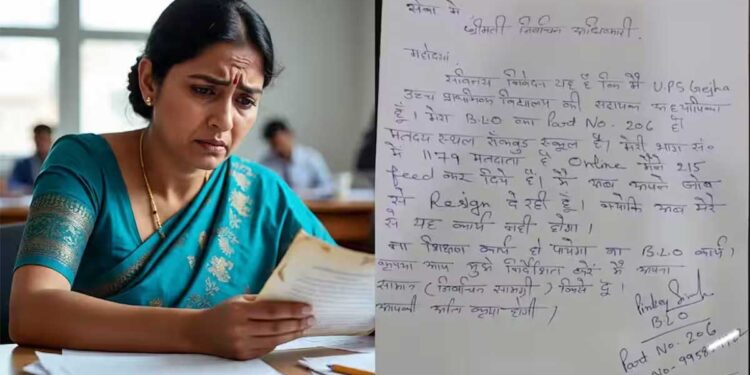 सेवा में
श्रीमती निर्वाचन अधिकारी,
महोदया,
सविनय निवेदन यह है कि मैं U.P.S Gejha
उच्च प्राथमिक विद्यालय की सहायक अध्यापिका
हूँ। मेरा B.L.O का Part No. 206 है।
मतदेय स्थल रॉकवुड स्कूल है। मेरी भाग सं०
में 1179 मतदाता है Online मैंने 215
feed कर दिये है। मैं अब अपने जॉब
से Resign दे रही हूँ। क्योंकि अब मेरे
से यह कार्य नहीं होगा।
ना शिक्षण कार्य हो पायेगा ना B.L.O कार्य।
कृपया आप मुझे निर्देशित करें मैं अपना
सामान (निर्वाचन सामग्री) किसे दूं।
आपकी अति कृपा होगी,
Pinky Singh
B.L.O
Part No. 206
No. - 9958